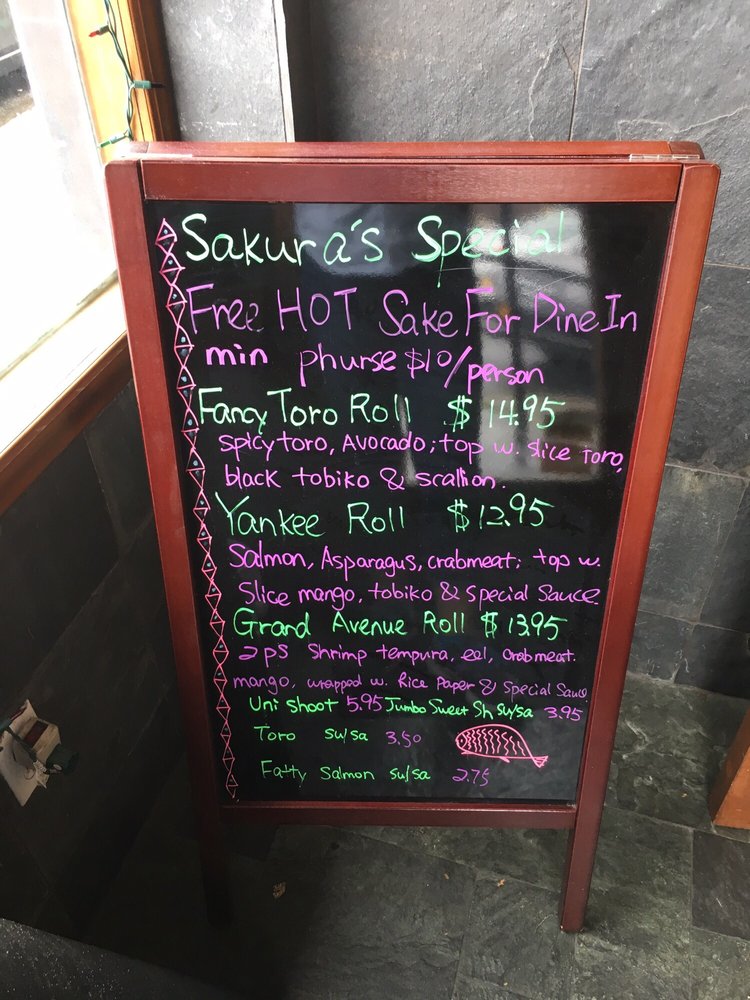 Sakura's Special
Free HOT Sake For Dine In
min phurse $10/person
Fancy Toro Roll $14.95
spicy toro, Avocado; top w. slice Toro,
black tobiko & scallion.
Yankee Roll $12.95
Salmon, Asparagus, crabmeat; top w.
Slice mango, tobiko & Special Sauce.
Grand Avenue Roll $13.95
2ps Shrimp tempura, eel, crabmeat.
mango, wrapped w. Rice Paper & Special Sauce
Uni shoot 5.95 Jumbo Sweet Sh su/sa 3.95
Toro su/sa 3.50
Fatty Salmon su/sa 2.75